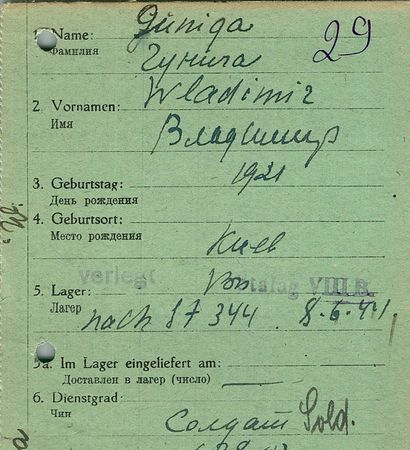 1. Name: Guniga 29
Фамилия Гунича
2. Vornamen: Wladimir
Имя Владимир
3. Geburtstag: 1921
День рождения
4. Geburtsort:
Место рождения Киев
verlegt von Stalag VIII B.
5. Lager:
Лагерь nach 344 8.6.44
5a. Im Lager eingeliefert am:
Доставлен в лагер (число) —
6. Dienstgrad:
Чин Солдат Sold.